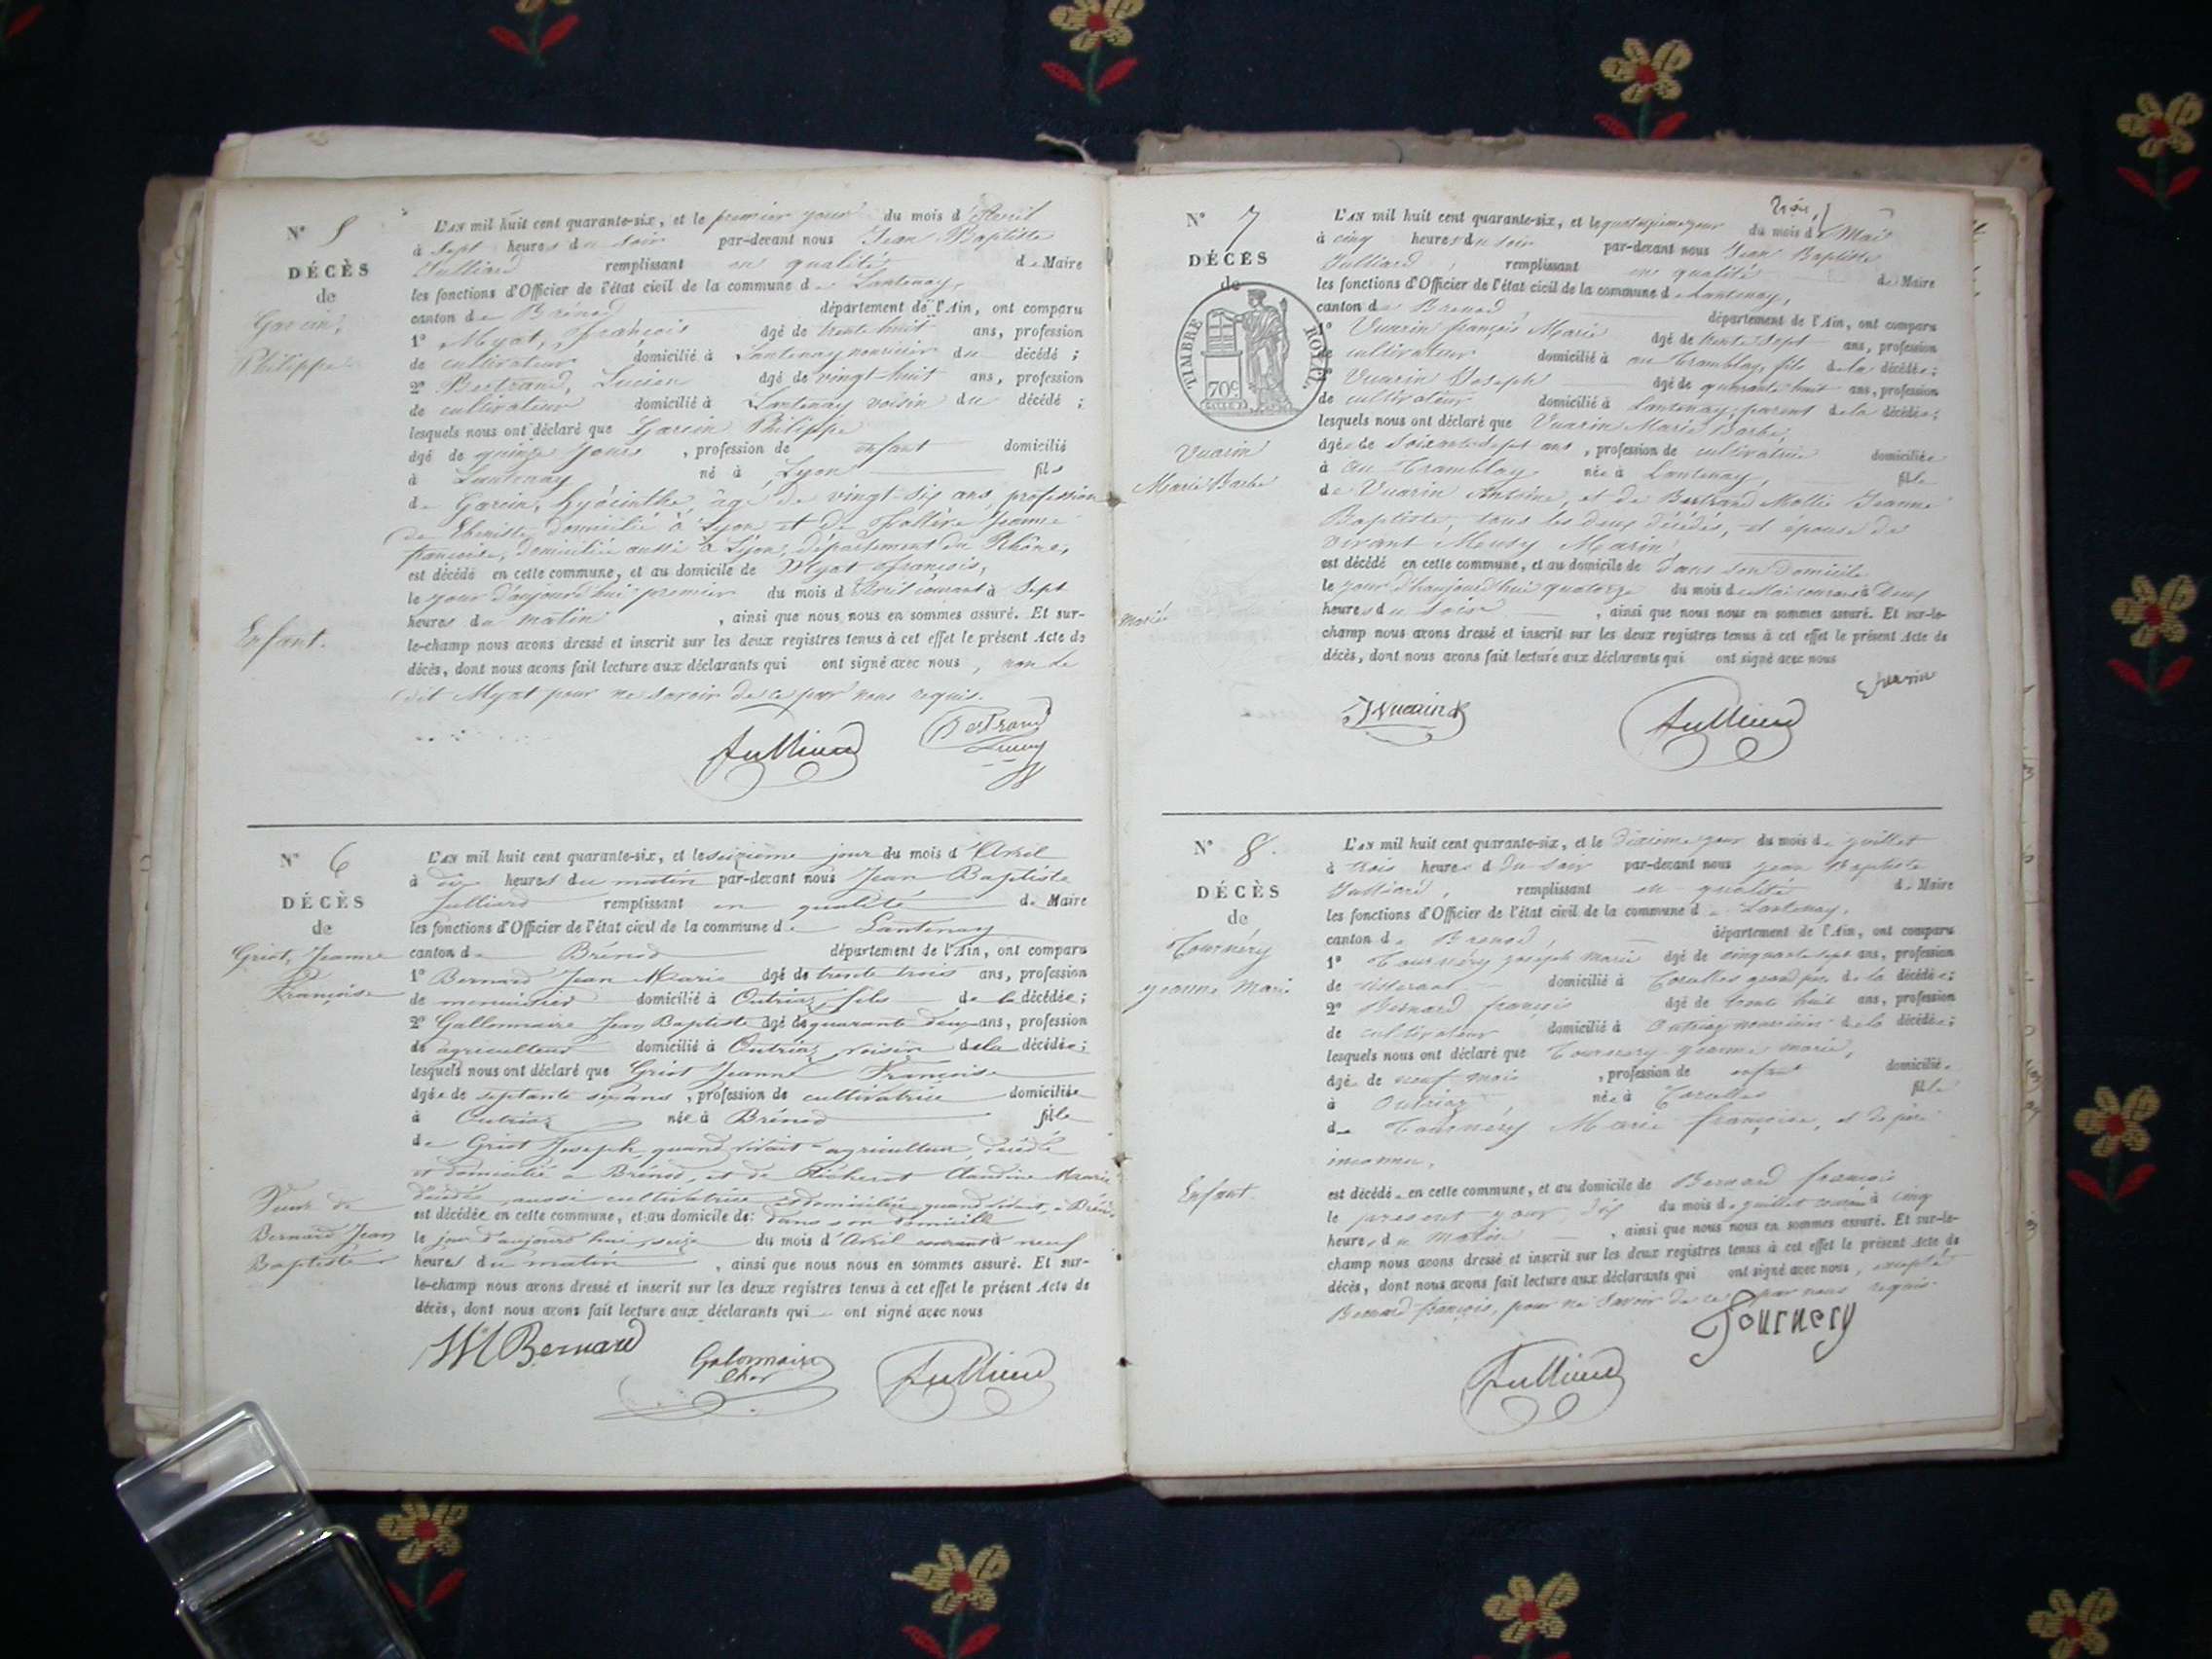 N° 5
DÉCÈS
de
Garcin,
Philippe
Enfant.
L'AN mil huit cent quarante-six, et le premier jour du mois d'Avril
à sept heures du soir par-devant nous Jean Baptiste
Julliard remplissant en qualité de Maire
les fonctions d'Officier de l'état civil de la commune de Lantenay,
canton de Brénod département de l'Ain, ont comparu
1° Myat, François âgé de trente huit ans, profession
de cultivateur domicilié à Lantenay nourricier du décédé ;
2° Bertrand, Lucien âgé de vingt-huit ans, profession
de cultivateur domicilié à Lantenay voisin du décédé ;
lesquels nous ont déclaré que Garcin Philippe
âgé de quinze jours , profession de enfant domicilié
à Lantenay né à Lyon fils
de Garcin, hyacinthe, âgé de vingt-six ans, profession
de Ebeniste domicilié à Lyon et de Jeanne
françoise, domiciliée aussi à Lyon, département du Rhône,
est décédé en cette commune, et au domicile de Myat François,
le jour d'aujourd'hui premier du mois d'Avril courant à Sept
heures du matin , ainsi que nous nous en sommes assuré. Et sur-
le-champ nous avons dressé et inscrit sur les deux registres tenus à cet effet le présent Acte de
décès, dont nous avons fait lecture aux déclarants qui ont signé avec nous, non le
dit Myat pour ne savoir de ce par nous requis.
Julliard Bertrand
N° 6
DÉCÈS
de
Griot, Jeanne
Françoise
Veuve de
Bernard Jean
Baptiste
L'AN mil huit cent quarante-six, et le seizième jour du mois d'Avril
à dix heures du matin par-devant nous Jean Baptiste
Julliard remplissant en qualité de Maire
les fonctions d'Officier de l'état civil de la commune de Lantenay
canton de Brénod département de l'Ain, ont comparu
1° Bernard Jean Marie âgé de trente trois ans, profession
de menuisier domicilié à Outriaz fils de la décédée ;
2° Gallonnaire Jean Baptiste âgé de quarante deux ans, profession
de agriculteur domicilié à Outriaz voisin de la décédée ;
lesquels nous ont déclaré que Griot Jeanne Françoise
âgée de septante six ans , profession de cultivatrice domiciliée
à Outriaz née à Brénod fille
de Griot Joseph quand vivait agriculteur, décédé
et domicilié à Brénod, et de Richerot Claudine Marie
décédée aussi cultivatrice et domiciliée quand vivait, à Brénod
est décédée en cette commune, et au domicile de : dans son domicile
le jour d'aujourd'hui, seize du mois d'Avril courant à neuf
heures du matin , ainsi que nous nous en sommes assuré. Et sur-
le-champ nous avons dressé et inscrit sur les deux registres tenus à cet effet le présent Acte de
décès, dont nous avons fait lecture aux déclarants qui ont signé avec nous
Bernard Galonnaire Julliard
N° 7
DÉCÈS
de
TIMBRE ROYAL
70c
Vuarin
Marie Barbe
Marié
L'AN mil huit cent quarante-six, et le quatorzième jour du mois de Mai
à cinq heures du soir par-devant nous Jean Baptiste
Julliard , remplissant en qualité de Maire
les fonctions d'Officier de l'état civil de la commune de Lantenay,
canton de Brenod, département de l'Ain, ont comparu
1° Vuarin françois Marie âgé de trente sept ans, profession
de cultivateur domicilié à au Tramblay, fils de la décédée ;
2° Vuarin Joseph âgé de quarante huit ans, profession
de cultivateur domicilié à Lantenay, parent de la décédée ;
lesquels nous ont déclaré que Vuarin Marie Barbe,
âgée de soixante-sept ans , profession de cultivatrice domiciliée
à au Tramblay née à Lantenay, fille
de Vuarin Antoine, et de Bertrand Jeanne
Baptiste, tous les deux décédés, et epouse de
vivant Meusy Marin,
est décédé en cette commune, et au domicile de dans son domicile
le jour d'haujourd'hui quatorze du mois de Mai courant à Deux
heures du soir , ainsi que nous nous en sommes assuré. Et sur-le-
champ nous avons dressé et inscrit sur les deux registres tenus à cet effet le présent Acte de
décès, dont nous avons fait lecture aux déclarants qui ont signé avec nous
Vuarin
JVuarin Julliard
N° 8.
DÉCÈS
de
Tournéry
jeanne Marie
Enfant.
L'AN mil huit cent quarante-six, et le dixième jour du mois de juillet
à trois heures d du soir par-devant nous jean Baptiste
Julliard, remplissant en qualité de Maire
les fonctions d'Officier de l'état civil de la commune de Lantenay.
canton de Brenod, département de l'Ain, ont comparu
1° Tournéry joseph marie âgé de cinquante sept ans, profession
de tisserant domicilié à Corcelles grand père de la décédée ;
2° Bernard françois âgé de trente huit ans, profession
de cultivateur domicilié à Outriaz nourricier de la décédée ;
lesquels nous ont déclaré que Tournery jeanne marie,
âgée de neuf mois , profession de enfant domiciliée
à Outriaz née à Corcelles fille
de Tournery Marie françoise, et de père
inconnu,
est décédée en cette commune, et au domicile de Bernard françois
le present jour, dix du mois de juillet courant à cinq
heures du matin , ainsi que nous nous en sommes assuré. Et sur-le-
champ nous avons dressé et inscrit sur les deux registres tenus à cet effet le présent Acte de
décès, dont nous avons fait lecture aux déclarants qui ont signé avec nous, excepté
Bernard françois, pour ne savoir de ce par nous requis.
Tournery
Julliard